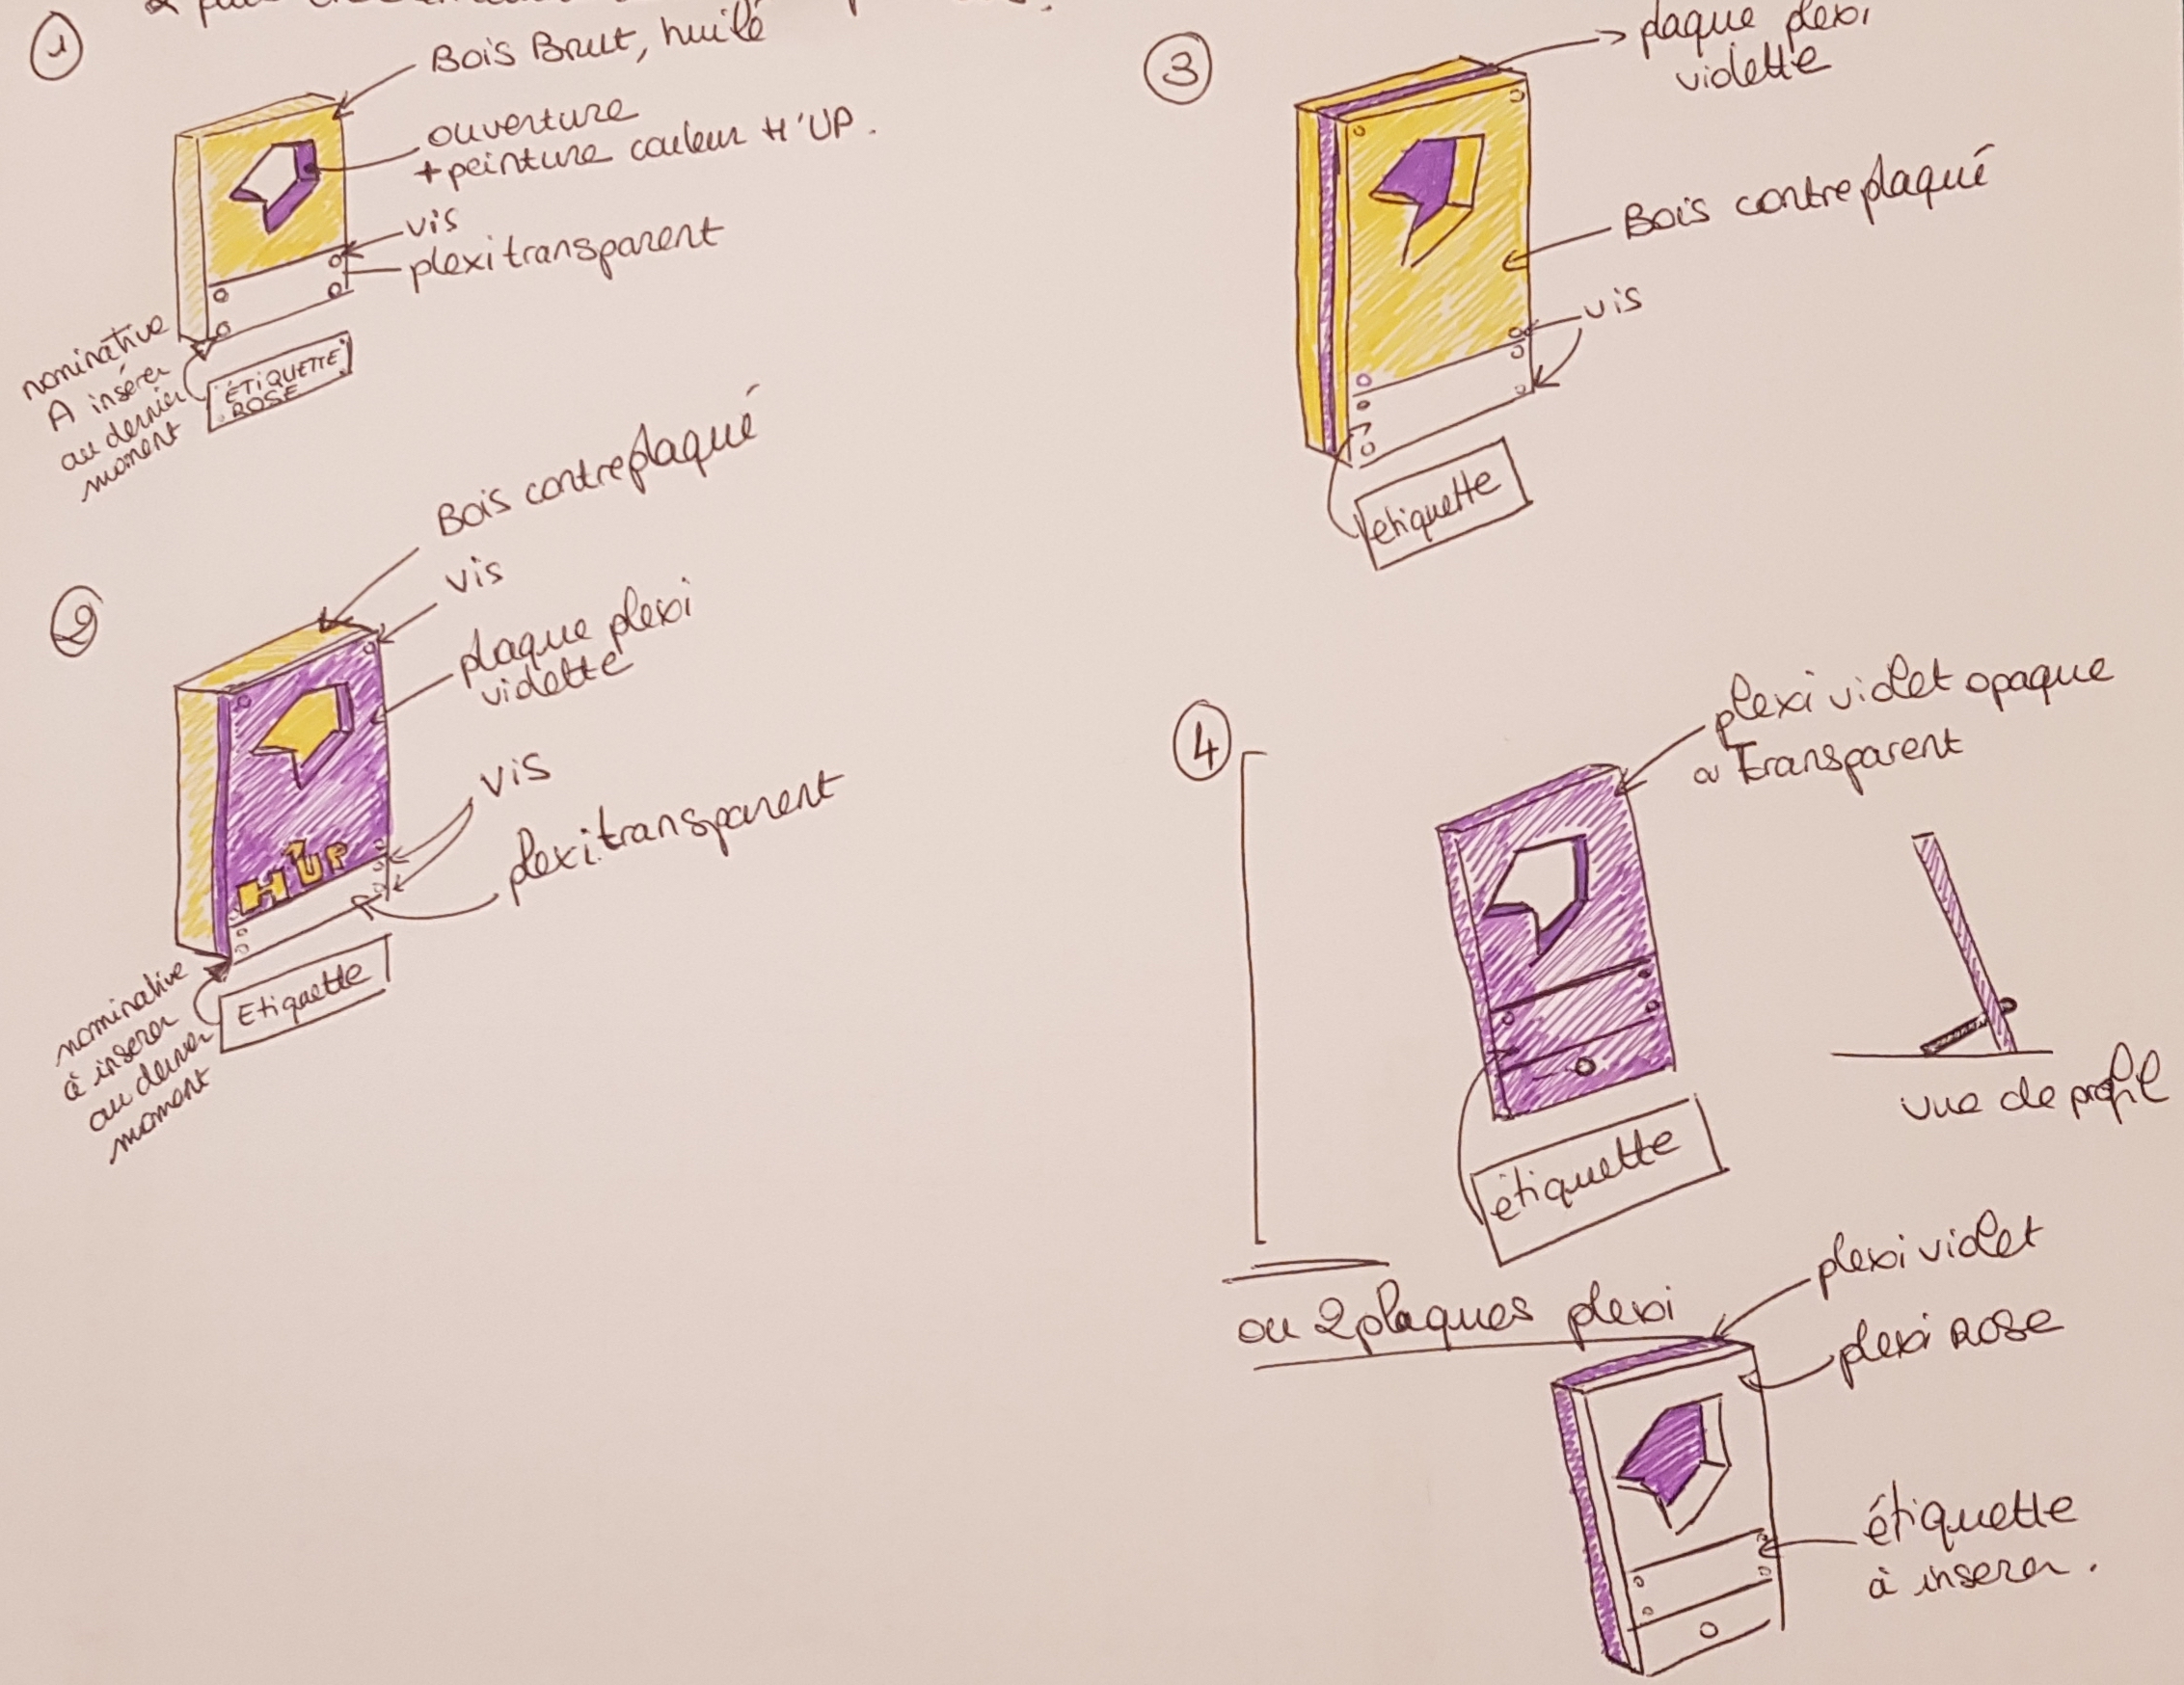 ①
Bois Brut, huilé
ouverture
+ peinture couleur H'UP.
vis
plexi transparent
nominative
A insérer
au dernier
moment
ÉTIQUETTE
ROSE
②
Bois contreplaqué
vis
plaque plexi
violette
vis
plexi transparent
H'UP
nominative
à inserer
au dernier
moment
Etiquette
③
plaque plexi
violette
Bois contreplaqué
vis
etiquette
④
plexi violet opaque
ou Transparent
vue de profil
étiquette
ou 2 plaques plexi
plexi violet
plexi ROSE
étiquette
à inserer.